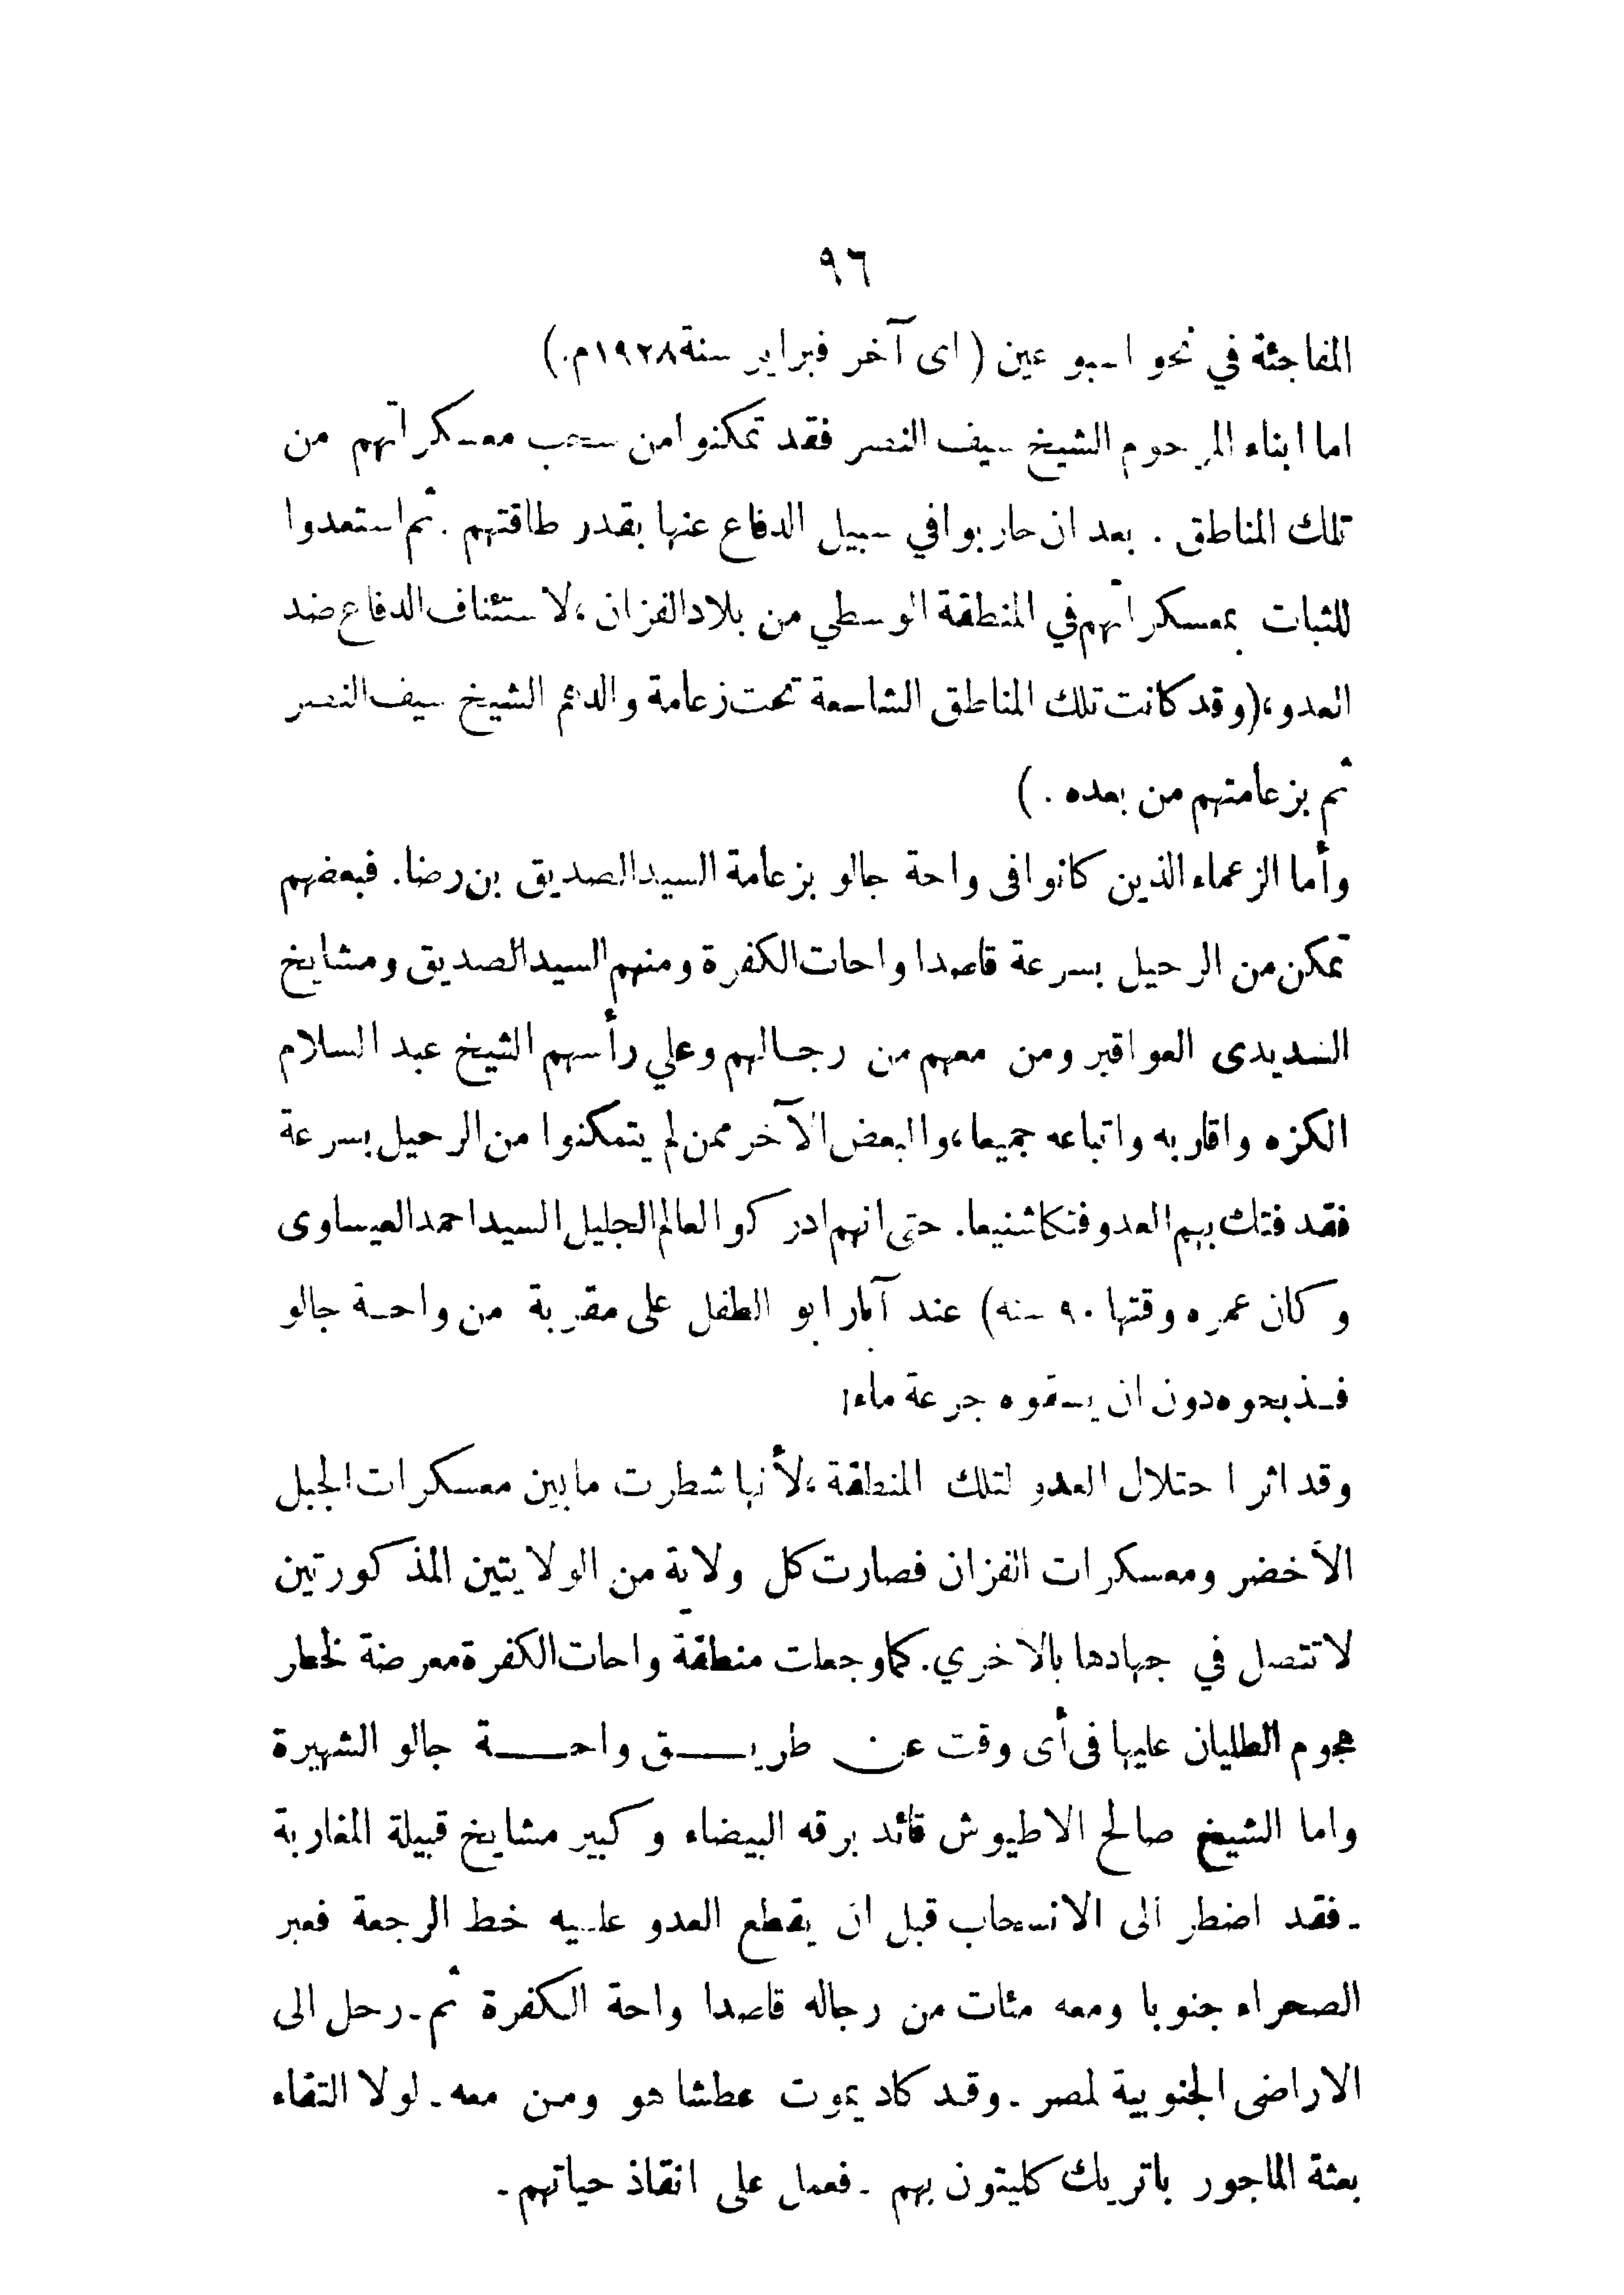 ٩٦
المفاجئة في نحو اسبوعين ( اى آخر فبراير سنة ١٩٢٨م.)
اما ابناء المرحوم الشيخ سيف النصر فقد تمكنوا من سحب معسكراتهم من
تلك المناطق . بعد ان حاربوا في سبيل الدفاع عنها بقدر طاقتهم . ثم استعدوا
للثبات بمعسكراتهم في المنطقة الوسطي من بلاد الفزان ، لاستئناف الدفاع ضد
العدو ، ( وقد كانت تلك المناطق الشاسعة تحت زعامة والدهم الشيخ سيف النصر
ثم بزعامتهم من بعده . )
وأما الزعماء الذين كانوا فى واحة جالو بزعامة السيد الصديق بن رضا . فبعضهم
تمكن من الرحيل بسرعة قاصدا واحات الكفرة ومنهم السيد الصديق ومشايخ
السديدى العواقير ومن معهم من رجالهم وعلي رأسهم الشيخ عبد السلام
الكزه واقاربه واتباعه جميعا ، والبعض الآخر ممن لم يتمكنوا من الرحيل بسرعة
فقد فتك بهم العدو فتكا شنيعا . حتى انهم ادركوا العالم الجليل السيد احمد العيساوى
وكان عمره وقتها ٩٠ سنه ) عند آبار ابو الطفل على مقربة من واحة جالو
فذبحوه دون ان يسقوه جرعة ماء !
وقد اثر احتلال العدو لتلك المنطقة ، لأنها شطرت مابين معسكرات الجبل
الأخضر ومعسكرات الفزان فصارت كل ولاية من الولايتين المذكورتين
لا تتصل في جهادها بالاخري . كما وجعلت منطقة واحات الكفرة معرضة لخطر
هجوم الطليان عليها فى أى وقت عن طريق واحة جالو الشهيرة
واما الشيخ صالح الاطيوش قائد برقه البيضاء وكبير مشايخ قبيلة المغاربة
- فقد اضطر الى الانسحاب قبل ان يقطع العدو عليه خط الرجعة فعبر
الصحراء جنوبا ومعه مئات من رجاله قاصدا واحة الكفرة ثم - رحل الى
الاراضى الجنوبية لمصر - وقد كاد يموت عطشا هو ومن معه - لولا التقاء
بعثة الماجور باتريك كليتون بهم - فعمل على انقاذ حياتهم -